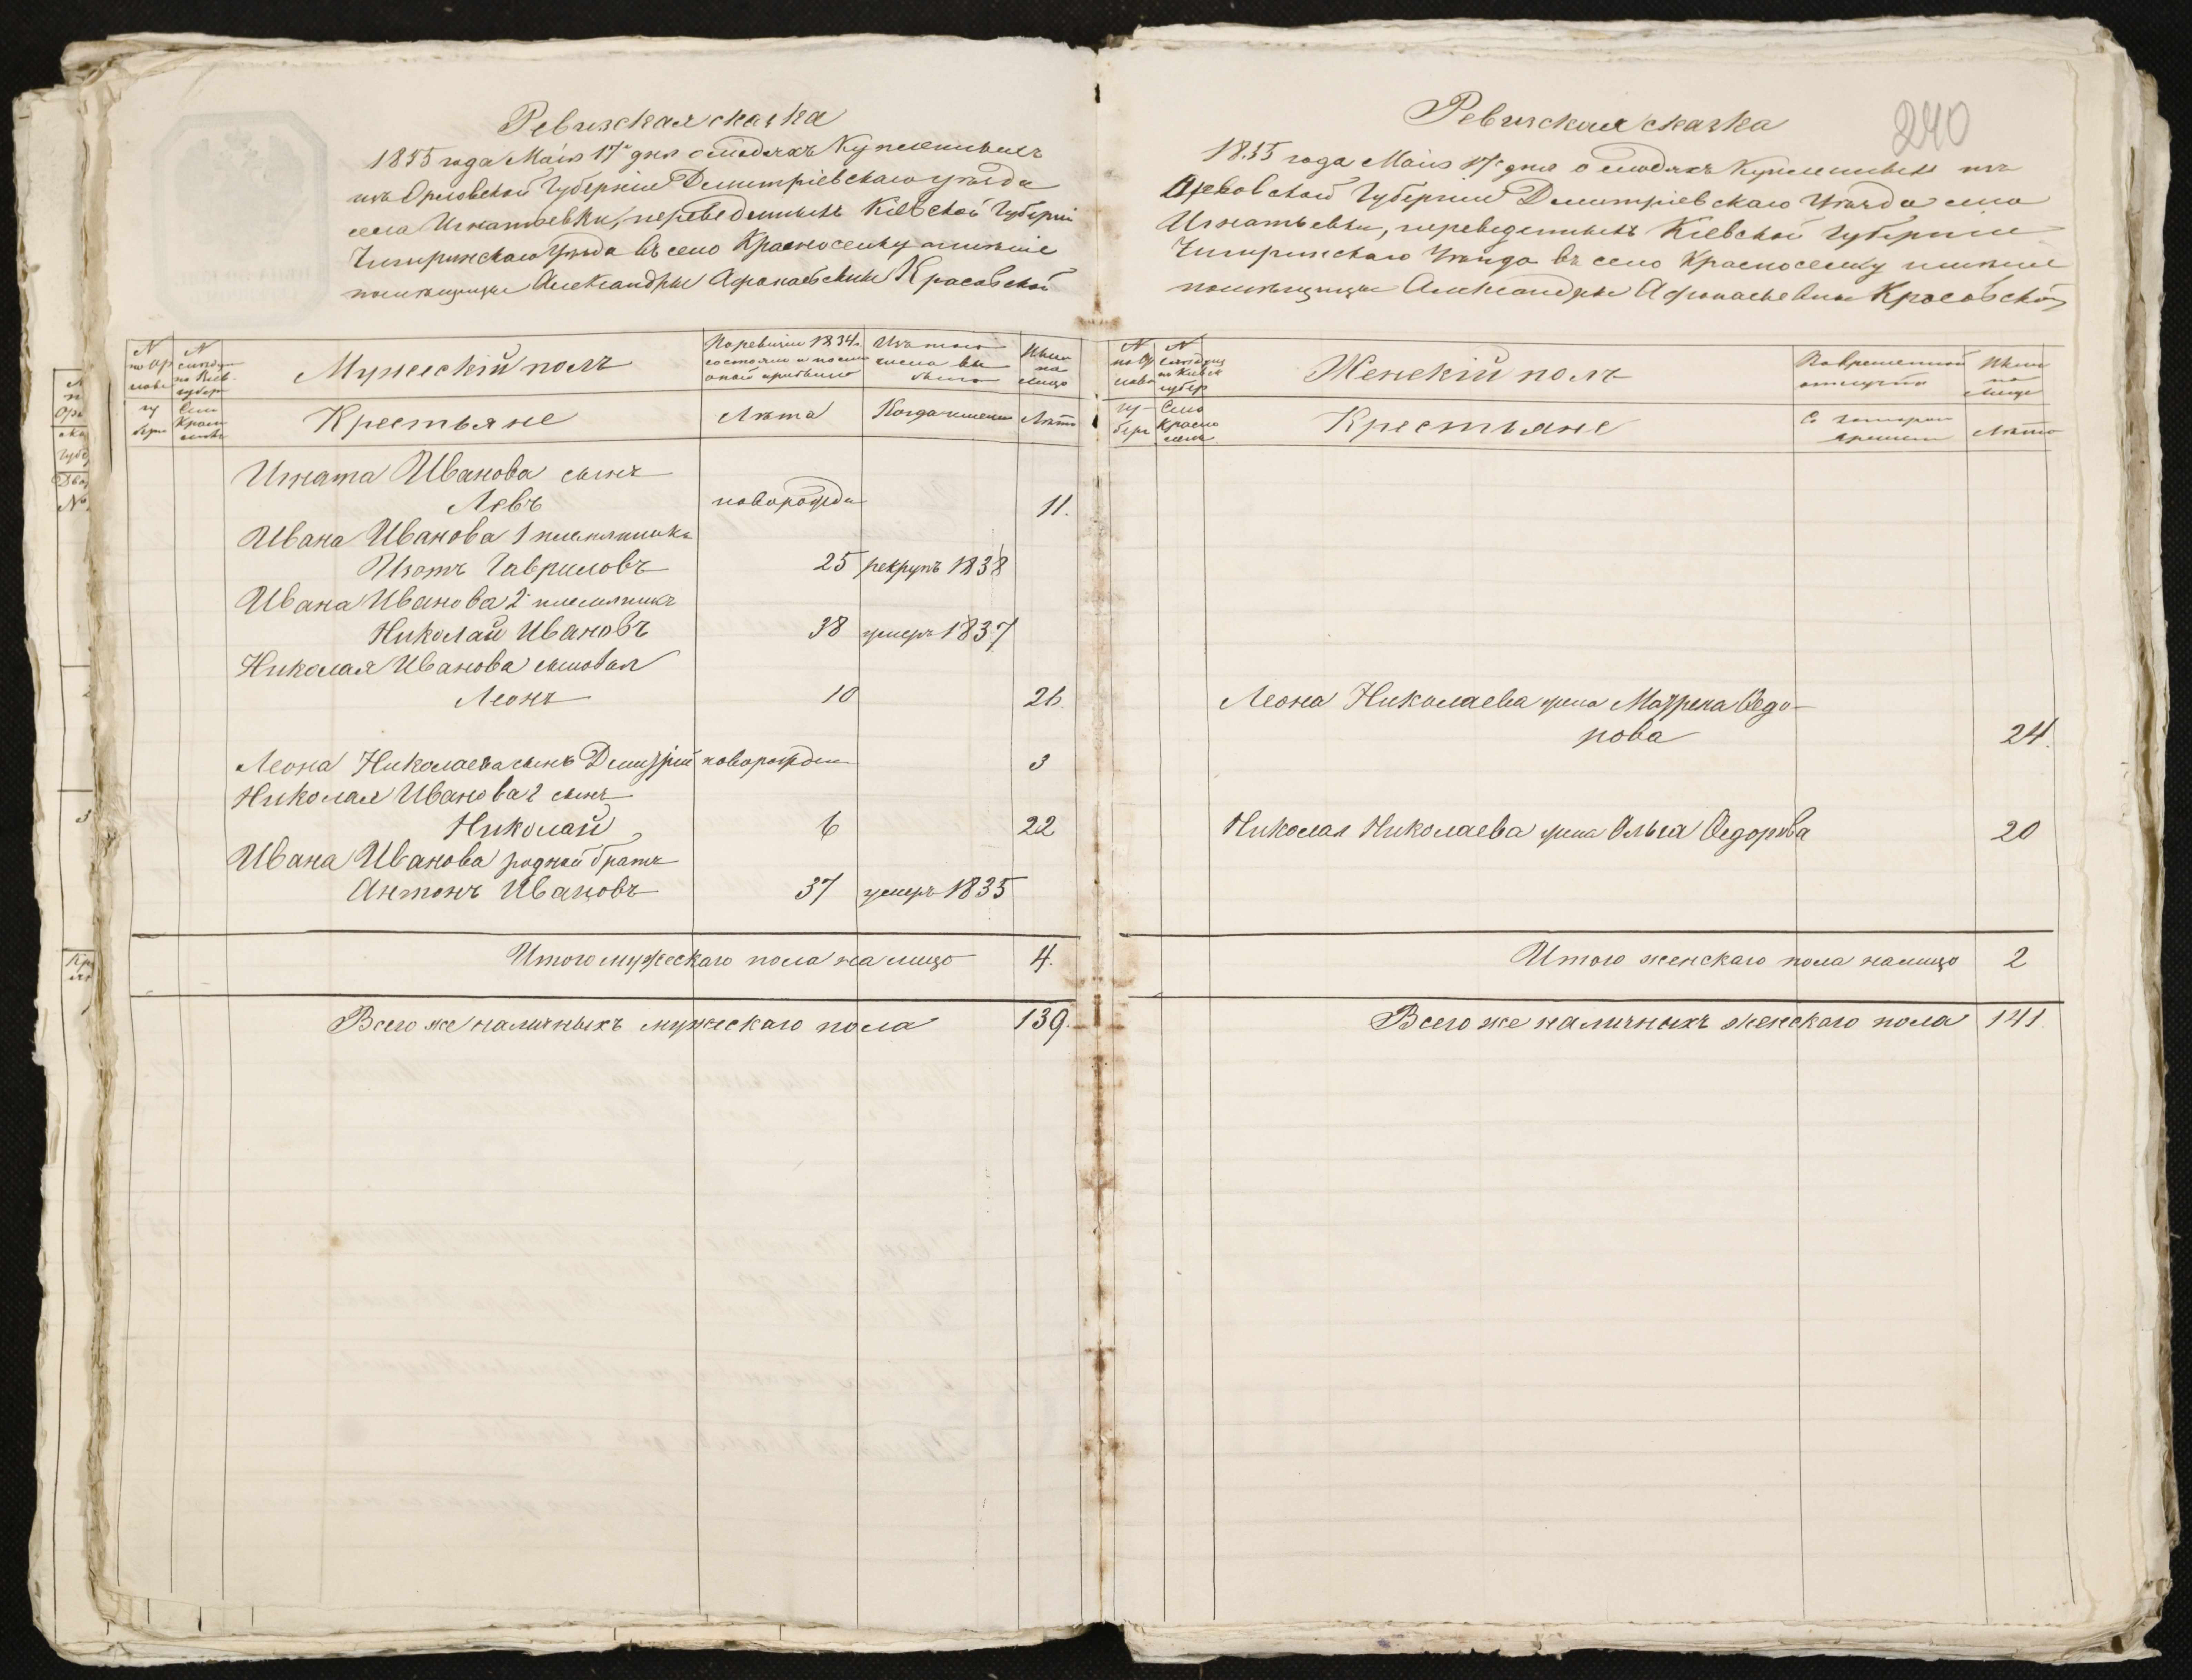 Ревизская сказка
1855 года Маія 17го дня о людяхъ Купленныхъ
изъ Орловской Губерніи Димитріевскаго уѣзда
села Игнатьевки, переведенныхъ Кіевской Губерніи
Чигиринскаго Уѣзда въ село Красноселку имѣніе
помѣщицы Александры Афонасьевны Красовской
N по Ор ловс
N по Кіев. губер
Мужескій полъ
По ревизіи 1834. состояло и послѣ оной прибыло
Изъ того числа вы было
Нынѣ на лицо
гу берн
Село Красн
Крестьяне
Лѣта
Когда именно
Лѣта
Игната Иванова сынъ
Левъ новорожден 11.
Ивана Иванова 1 племянникъ
Изотъ Гавриловъ 25 рекрутъ 1838
Ивана Иванова 2й племянникъ
Николай Ивановъ 38 умеръ 1837
Николая Иванова сыновья
Леонъ 10 26.
Леона Николаева сынъ Димитрій новорожден 3
Николая Иванова 2 сынъ
Николай 6 22
Ивана Иванова родной братъ
Антонъ Ивановъ 37 умеръ 1835
Итого мужескаго пола на лицо 4.
Всего же наличныхъ мужескаго пола 139.
240
Ревизская сказка
1855 года Маія 17го дня о людяхъ Купленныхъ изъ
Орловской Губерніи Димитріевскаго Уѣзда села
Игнатьевки, переведенныхъ Кіевской Губерніи
Чигиринскаго Уѣзда въ село Красноселку имѣніе
помѣщицы Александры Афонасьевны Красовской
Женскій полъ
Во временной отлучкѣ
Нынѣ на лице
гу- берн
Село Красно селк
Крестьяне
Съ котораго времени
Лѣта
Леона Николаева жена Матрена Ѳедо-
рова 24.
Николая Николаева жена Ольга Ѳедорова 20
Итого женскаго пола налицо 2
Всего же наличныхъ женскаго пола 141